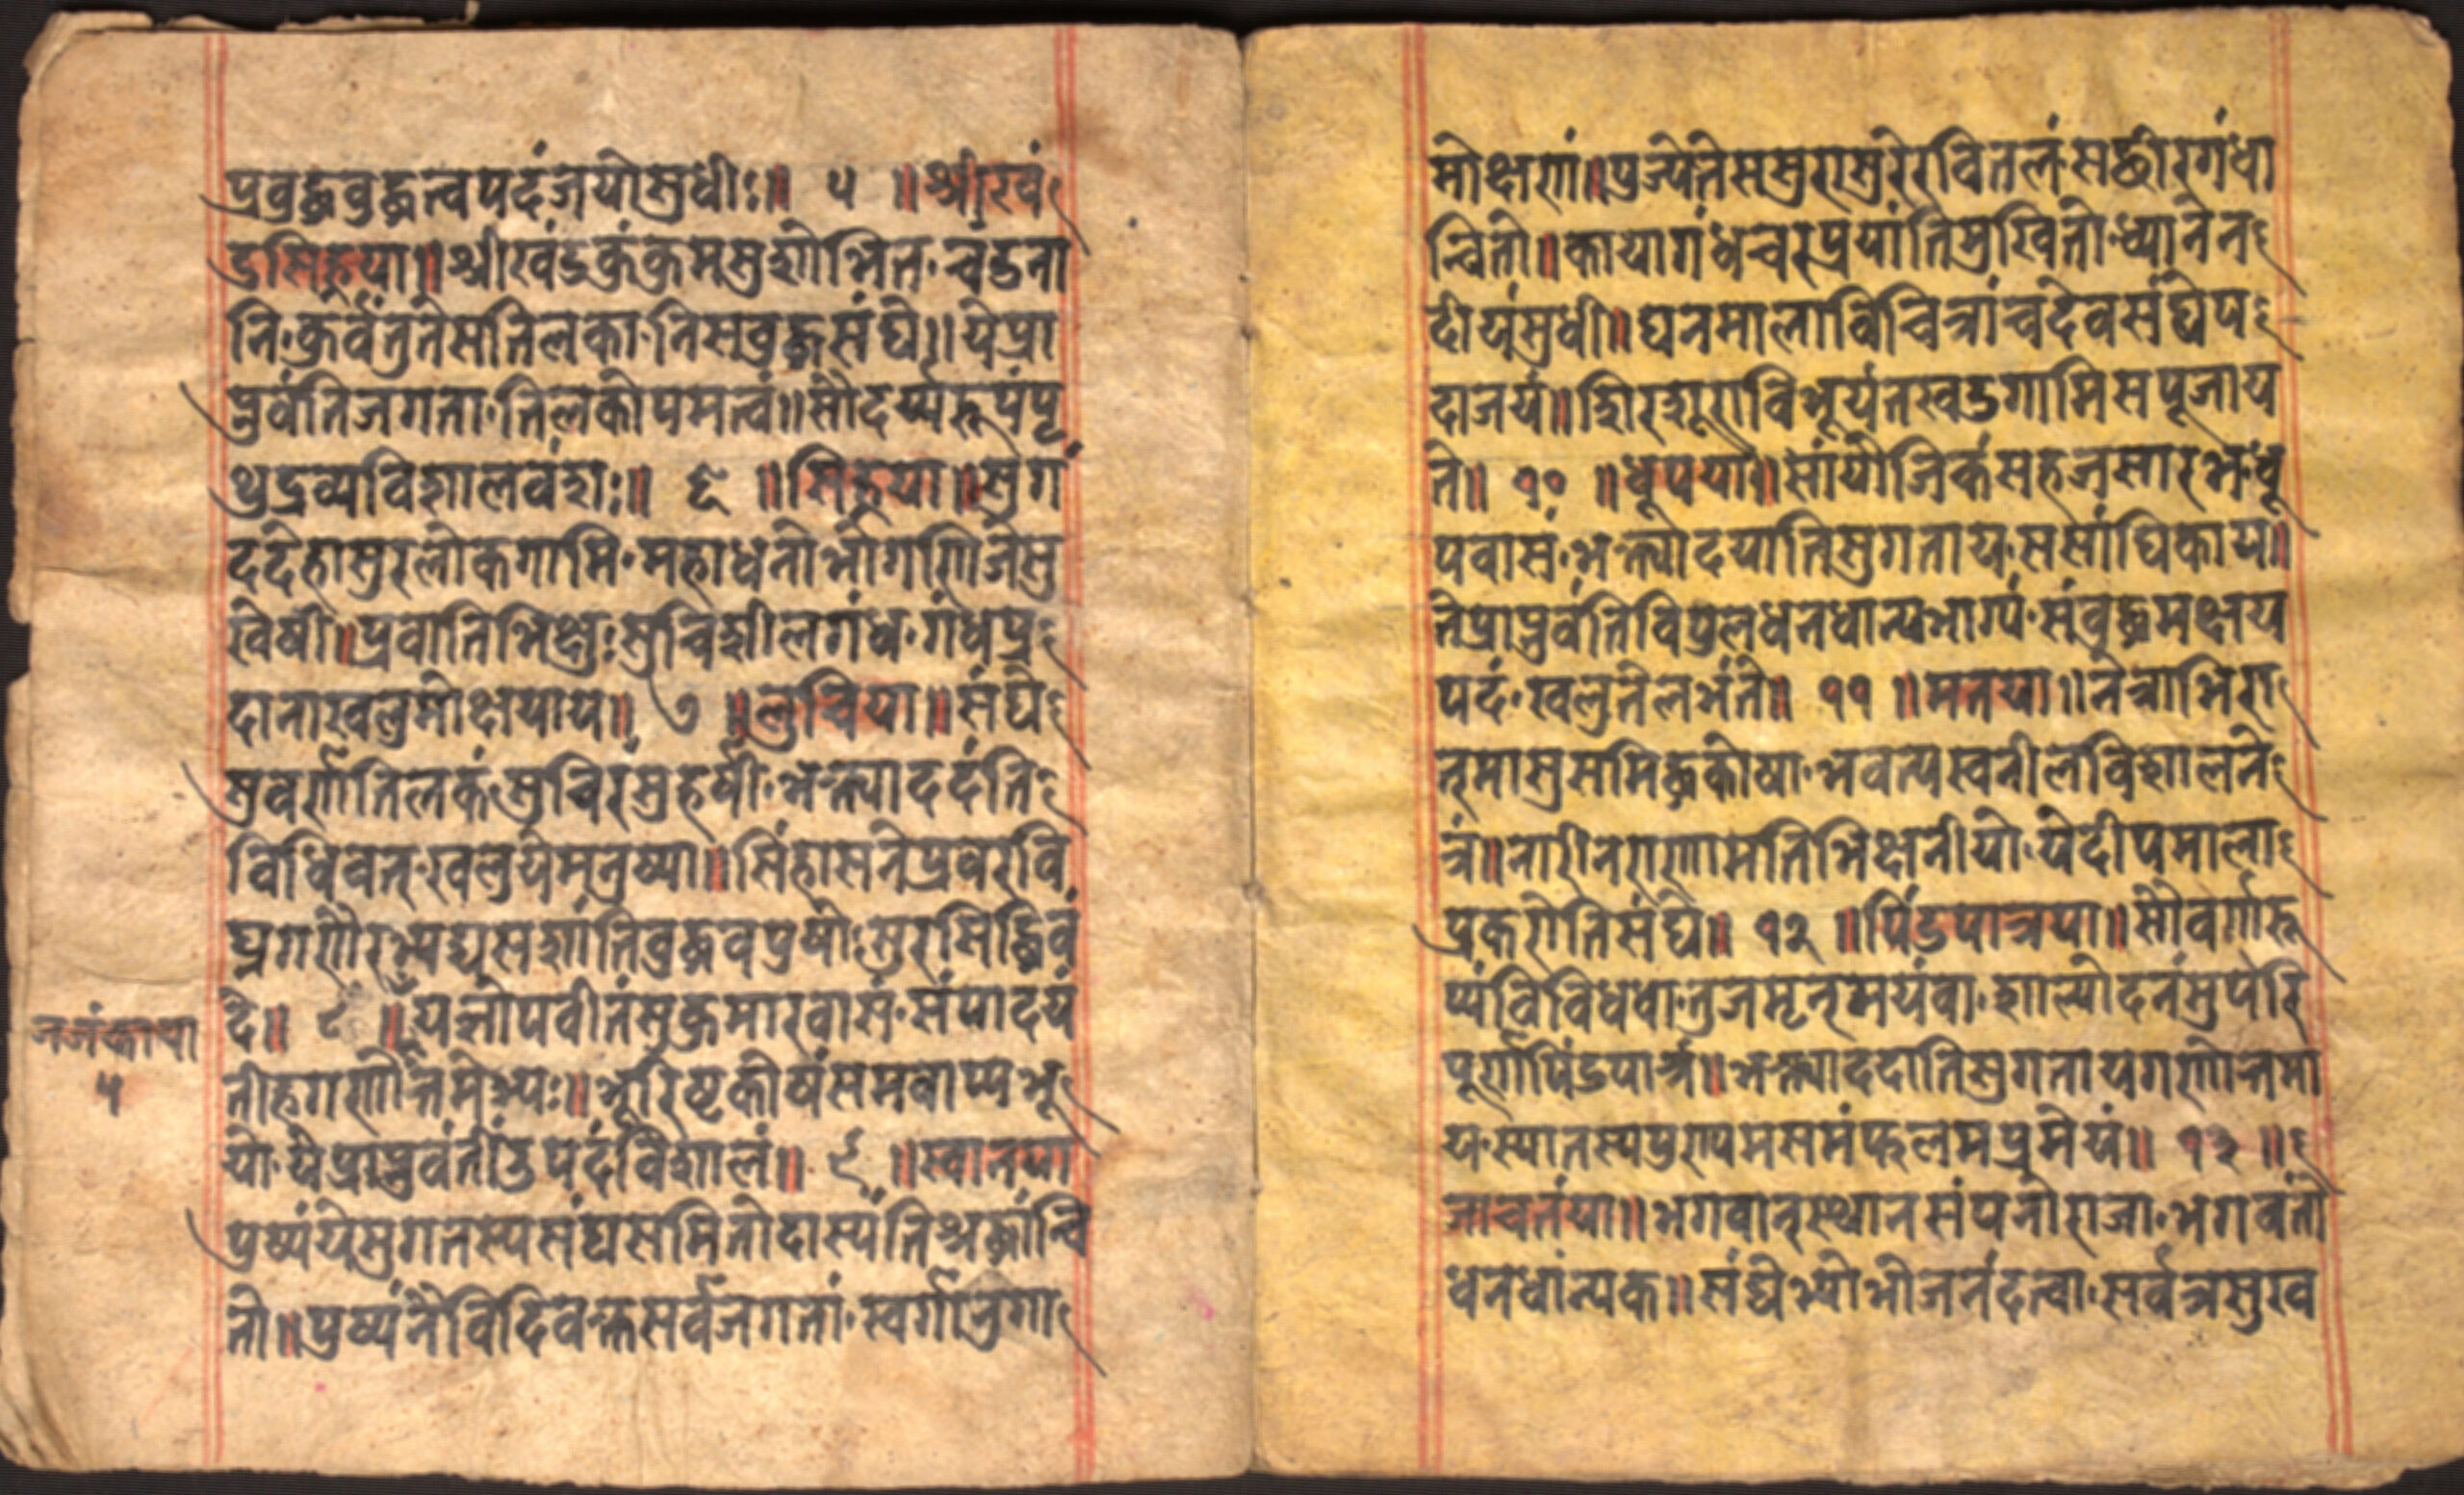 प्रबुद्धबुद्धत्वपदंजयोसुधीः॥ ५ ॥श्रीखं
डसिह्रया॥श्रीखंडकुंकुमसुशोभित॰चंडना
नि॰कुर्वंतुतेसतिलका॰निसबुद्धसंघे॥येप्रा
प्नुवंतिजगता॰तिलकोपमत्वं॥सौदर्य्यरूपंपृ
थुद्रव्यविशालवंशः॥ ६ ॥सिह्रया॥सुगं
ददेहासुरलोकगामि॰महाधनोर्भागगिाजेसु
खैषी॥प्रवातिभिक्षुःसुचिशीलगंध॰गंधप्र
दानाखलुमोक्षयाय॥ ७ ॥लुचिया॥संघे
सुवर्णतिलकं॰सुचिरंसुहर्षी॰भक्त्याददंति
विधिवत्॰खलुयेमनुष्या॥सिंहासनेप्रवरवि
प्रगणैरभ्यद्युसशांतिबुद्धवपुषो॰सुरसिद्धिवं
दे॥ ८ ॥यज्ञोपवीतंसुकुमारवासं॰संपादयं
तीहगणोत्तमेभ्यः॥भूरिष्टकोषंसमवाप्यभू
यो॰येप्राप्नुवंतींडपदंविशालं॥ ९ ॥स्वानया
पुष्पंयेसुगतस्यसंघसमितोदास्यंतिश्रद्धांन्वि
तो॥पुष्पंनैविदिवक्तसर्वजगतां॰स्वर्गानुगा
जजंकाया
५
मोक्षगां॥पुज्येतेससुरासुरेरवितलं॰सद्धीरगंधा
न्वितो॥कायागंधचरप्रयांतिसुखितो॰ध्यानेन
दीयंसुधी॥घनमालाविचित्रांचदेवसंघेप
दाजयं॥शिरशूराविभूयंतखडगामिसपूजाय
ते॥ १० ॥धूपया॥सांयौजिकंसहजसारभ॰धू
पवासं॰भक्त्यादयातिसुगताय॰ससांघिकाय॥
तेप्राप्नुवंतिविपुलधनधान्यभाग्यं॰संबुद्धमक्षय
पदं॰खलुतेलभंते॥ ११ ॥मतया॥नेत्राभिरा
त्मासुसमिद्धकोषा॰भवत्यस्वनीलविशालने
त्रं॥नारीनराणामतिभिक्षनीयो॰येदीपमाला
प्रकरोतिसंघे॥ १२ ॥पिंडपात्रया॥सौवर्णरू
प्यंविविधवा॰तुजमृत्मयंवा॰शाल्योदनंसुपरि
पूर्णपिंडपात्रं॥भक्त्याददातिसुगतायगणोत्तमा
य॰स्यातस्यपुण्यमसमंफलमप्रमेयं॥ १३ ॥
जाचतंया॥भगवान्स्थानसंपनोराजा॰भगवंतो
धनधांन्यक॥संघेभ्योभोजनंदत्वा॰सर्वत्रसुख